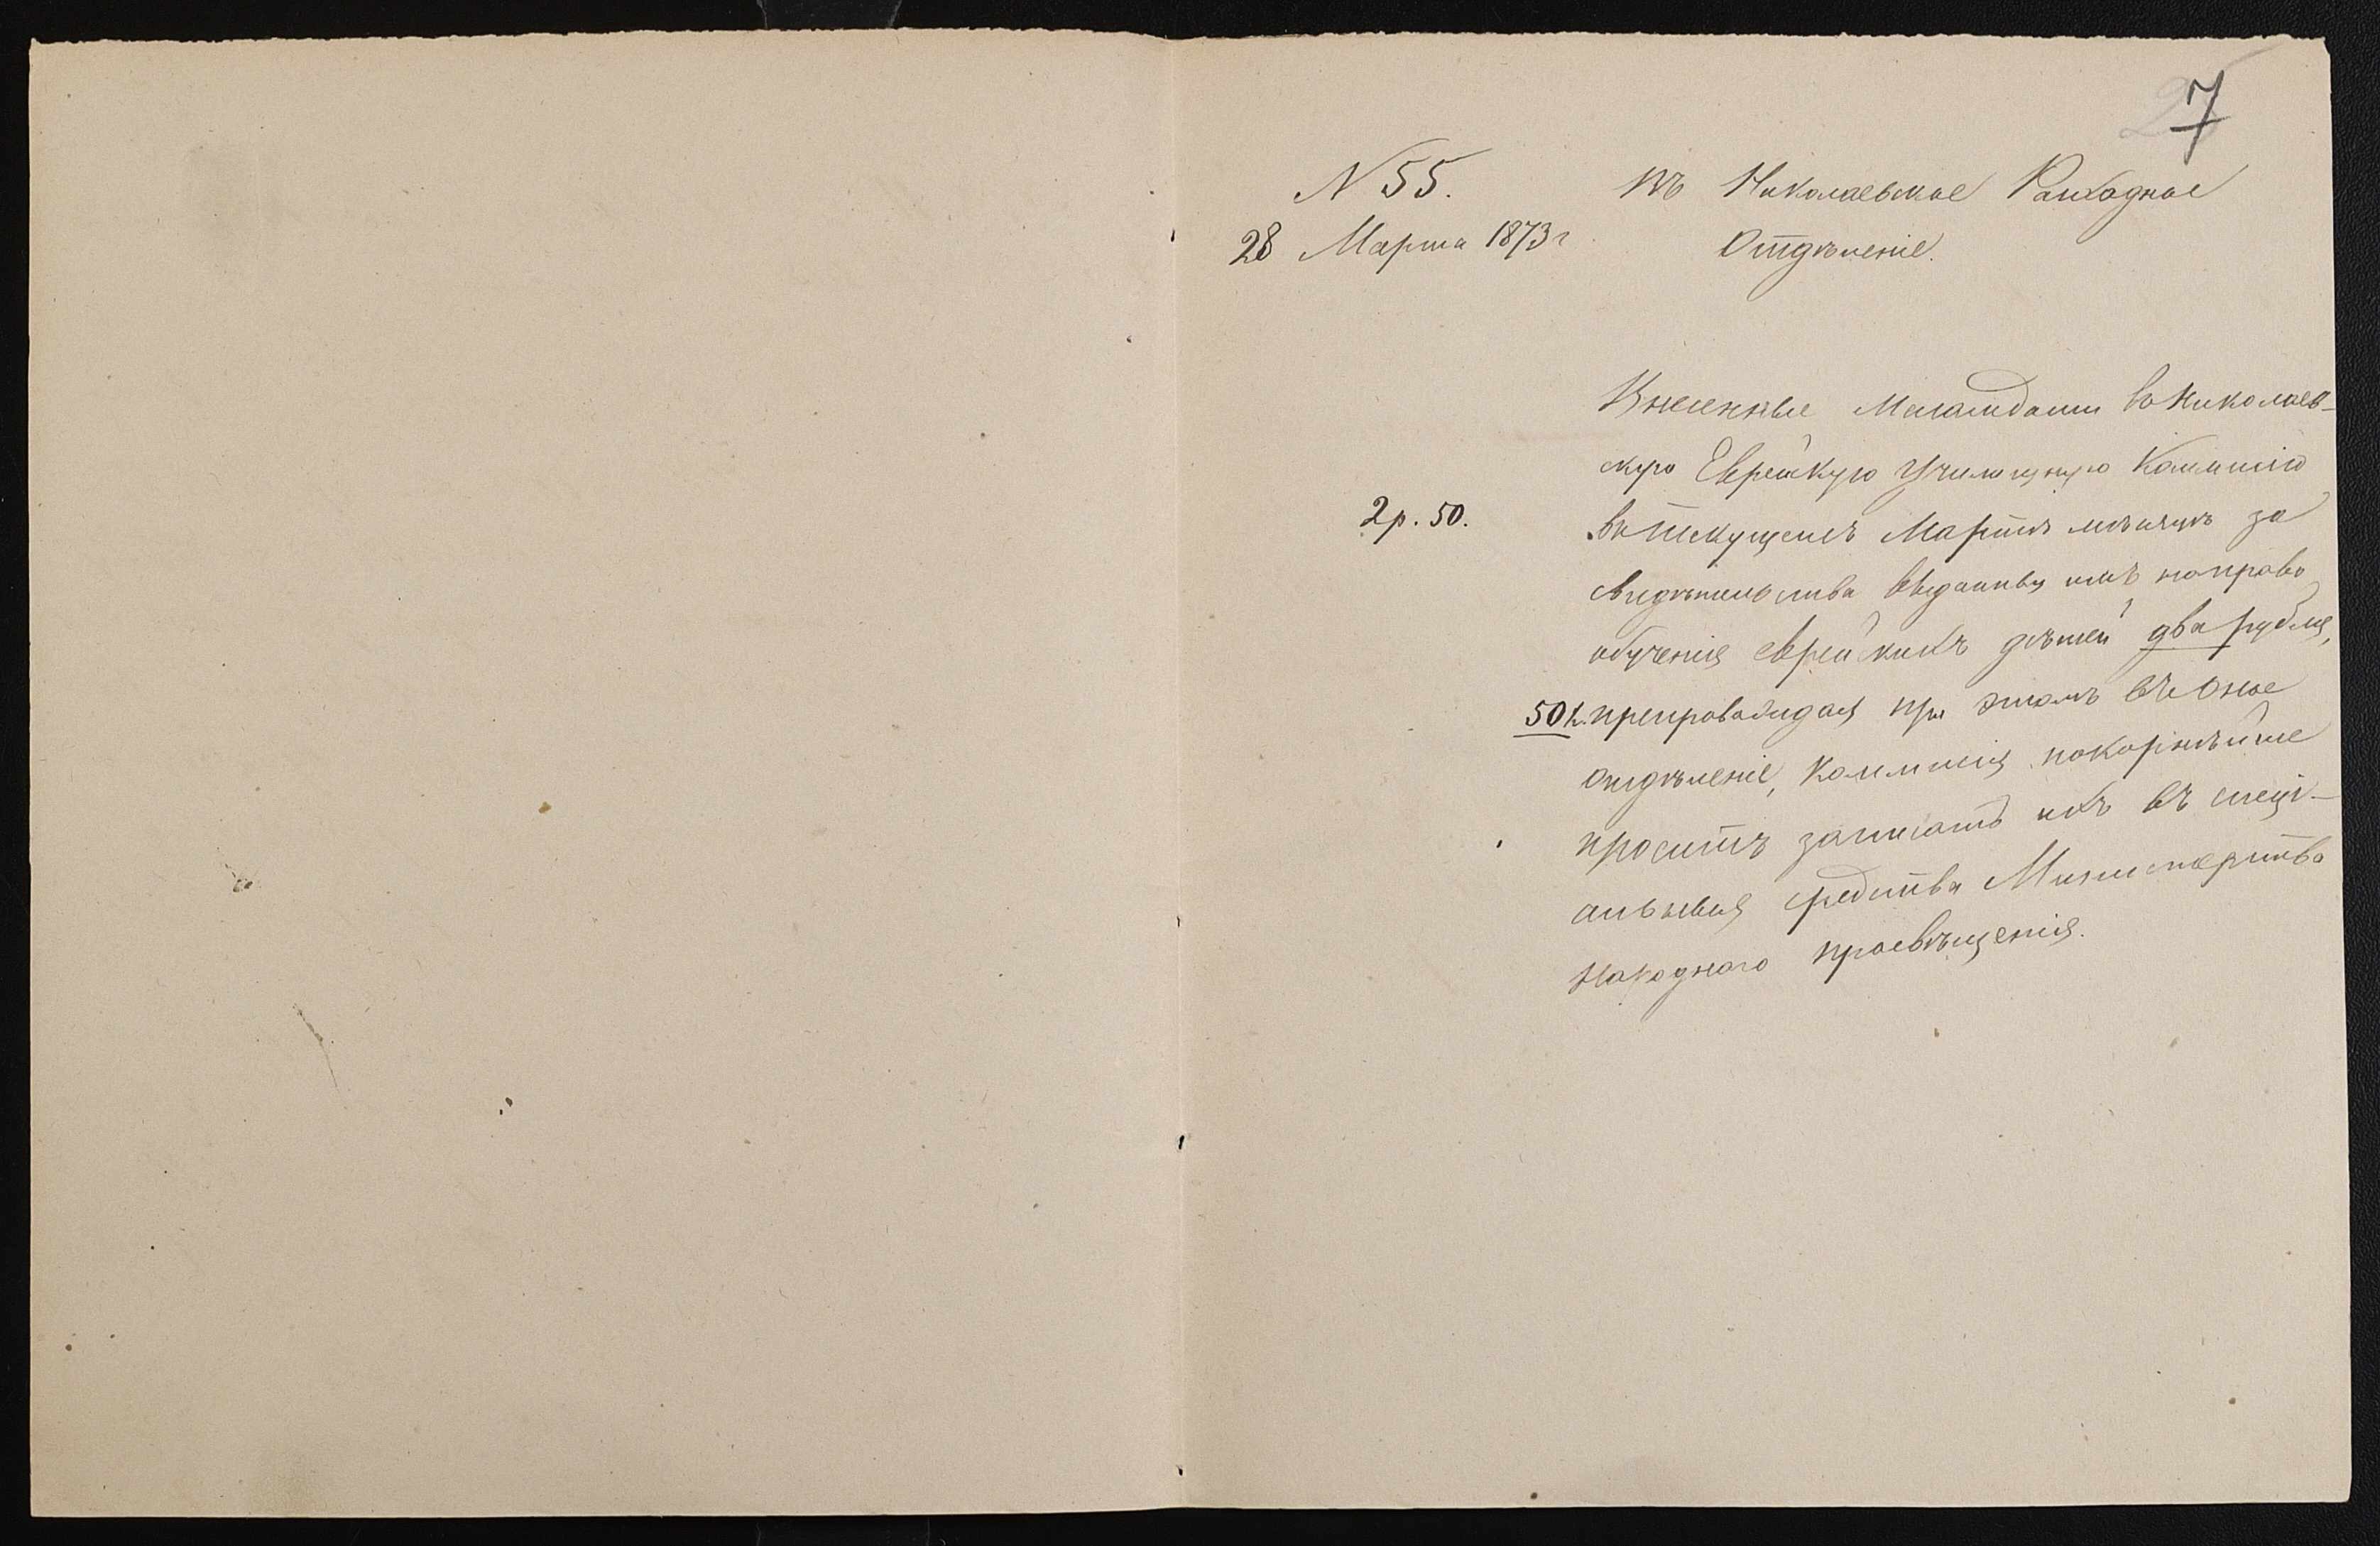 7
N 55.
28 Марта 1873 г
Въ Николаевское Расходное
Отдѣленіе.
Внесенные Меламдами въ Николаев-
скую Еврейскую Училищную Коммисію
2 р. 50.
въ текущемъ Мартѣ мѣсяцѣ за
свидѣтельства выданныя имъ на право
обученія еврейскихъ дѣтей два рубля,
50 к. препровождая при этомъ въ оное
отдѣленіе, Коммисія покорнѣйше
проситъ записать ихъ въ спеці-
альныя средства Министерства
Народнаго просвѣщенія.